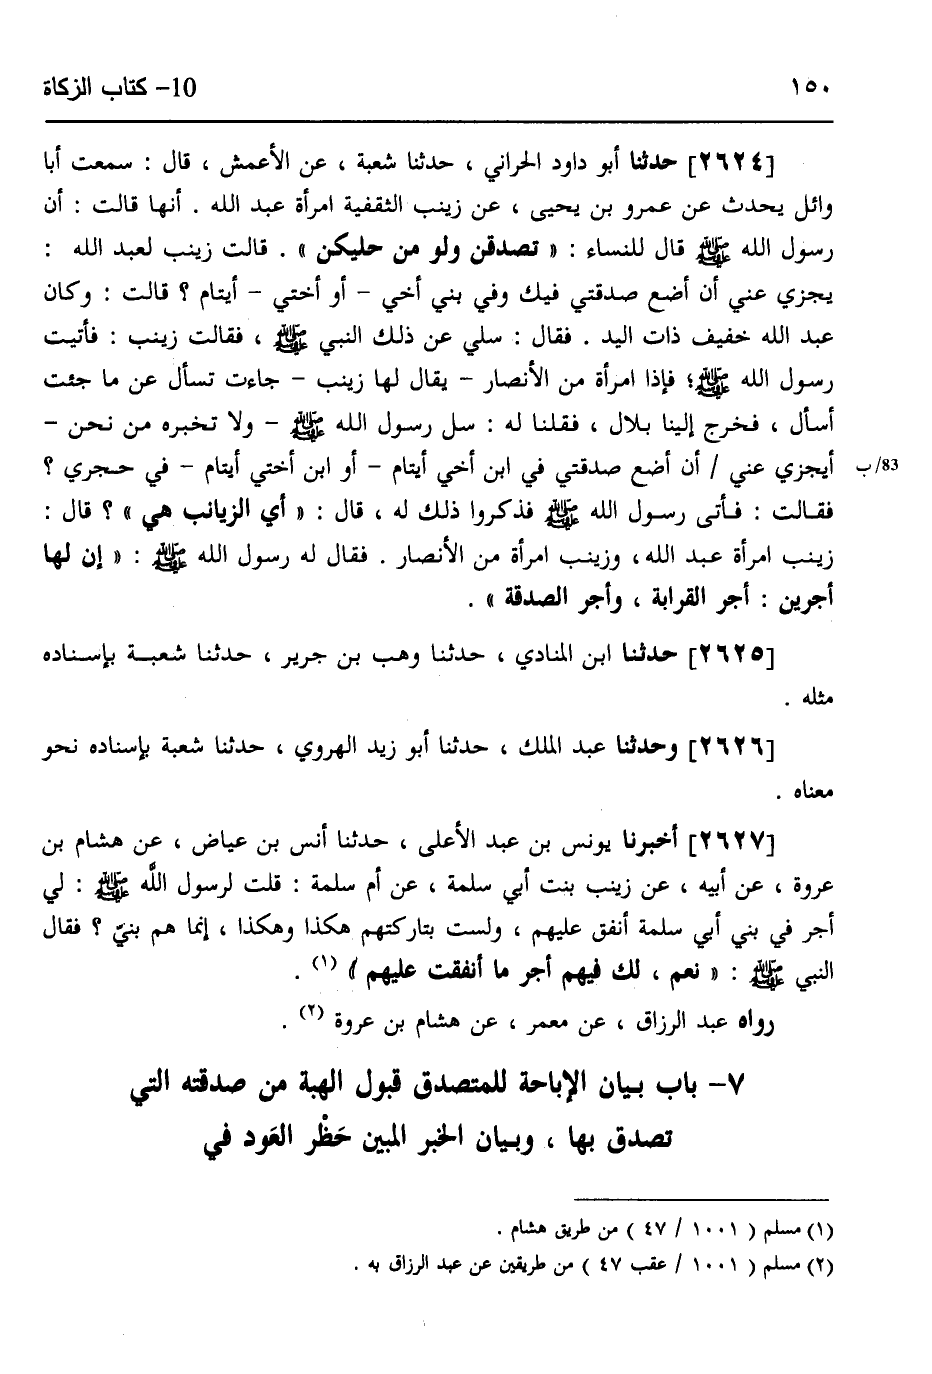 ١٥٠
10- كتاب الزكاة
[٢٦٢٤] حدثنا أبو داود الحراني ، حدثنا شعبة ، عن الأعمش ، قال : سمعت أبا
وائل يحدث عن عمرو بن يحيى ، عن زينب الثقفية امرأة عبد الله . أنها قالت : أن
رسول الله ﷺ قال للنساء : « تصدقن ولو من حليكن » . قالت زينب لعبد الله :
يجزي عني أن أضع صدقتي فيك وفي بني أخي - أو أختي - أيتام ؟ قالت : وكان
عبد الله خفيف ذات اليد . فقال : سلي عن ذلك النبي ﷺ ، فقالت زينب : فأتيت
رسول الله ﷺ؛ فإذا امرأة من الأنصار - يقال لها زينب - جاءت تسأل عن ما جئت
أسأل ، فخرج إلينا بلال ، فقلنا له : سل رسول الله ﷺ - ولا تخبره من نحن -
أيجزي عني / أن أضع صدقتي في ابن أخي أيتام - أو ابن أختي أيتام - في حجري ؟
83/ب
فقالت : فأتى رسول الله ﷺ فذكروا ذلك له ، قال : « أي الزيانب هي » ؟ قال :
زينب امرأة عبد الله، وزينب امرأة من الأنصار . فقال له رسول الله ﷺ : « إن لها
أجرين : أجر القرابة ، وأجر الصدقة » .
[٢٦٢٥] حدثنا ابن المنادي ، حدثنا وهب بن جرير ، حدثنا شعبة بإسناده
مثله .
[٢٦٢٦] وحدثنا عبد الملك ، حدثنا أبو زيد الهروي ، حدثنا شعبة بإسناده نحو
معناه .
[٢٦٢٧] أخبرنا يونس بن عبد الأعلى ، حدثنا أنس بن عياض ، عن هشام بن
عروة ، عن أبيه ، عن زينب بنت أبي سلمة ، عن أم سلمة : قلت لرسول اللَّه ﷺ : لي
أجر في بني أبي سلمة أنفق عليهم ، ولست بتاركتهم هكذا وهكذا ، إنما هم بنيّ ؟ فقال
النبي ﷺ : « نعم ، لك فيهم أجر ما أنفقت عليهم » (١) .
رواه عبد الرزاق ، عن معمر ، عن هشام بن عروة (٢) .
٧- باب بيان الإباحة للمتصدق قبول الهبة من صدقته التي
تصدق بها ، وبيان الخبر المبين حَظْر العَود في
(١) مسلم ( ١٠٠١ / ٤٧ ) من طريق هشام .
(٢) مسلم ( ١٠٠١ / عقب ٤٧ ) من طريقين عن عبد الرزاق به .